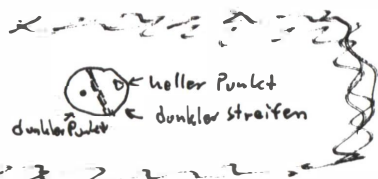 heller Punkt
dunkler Streifen
dunkler Punkt